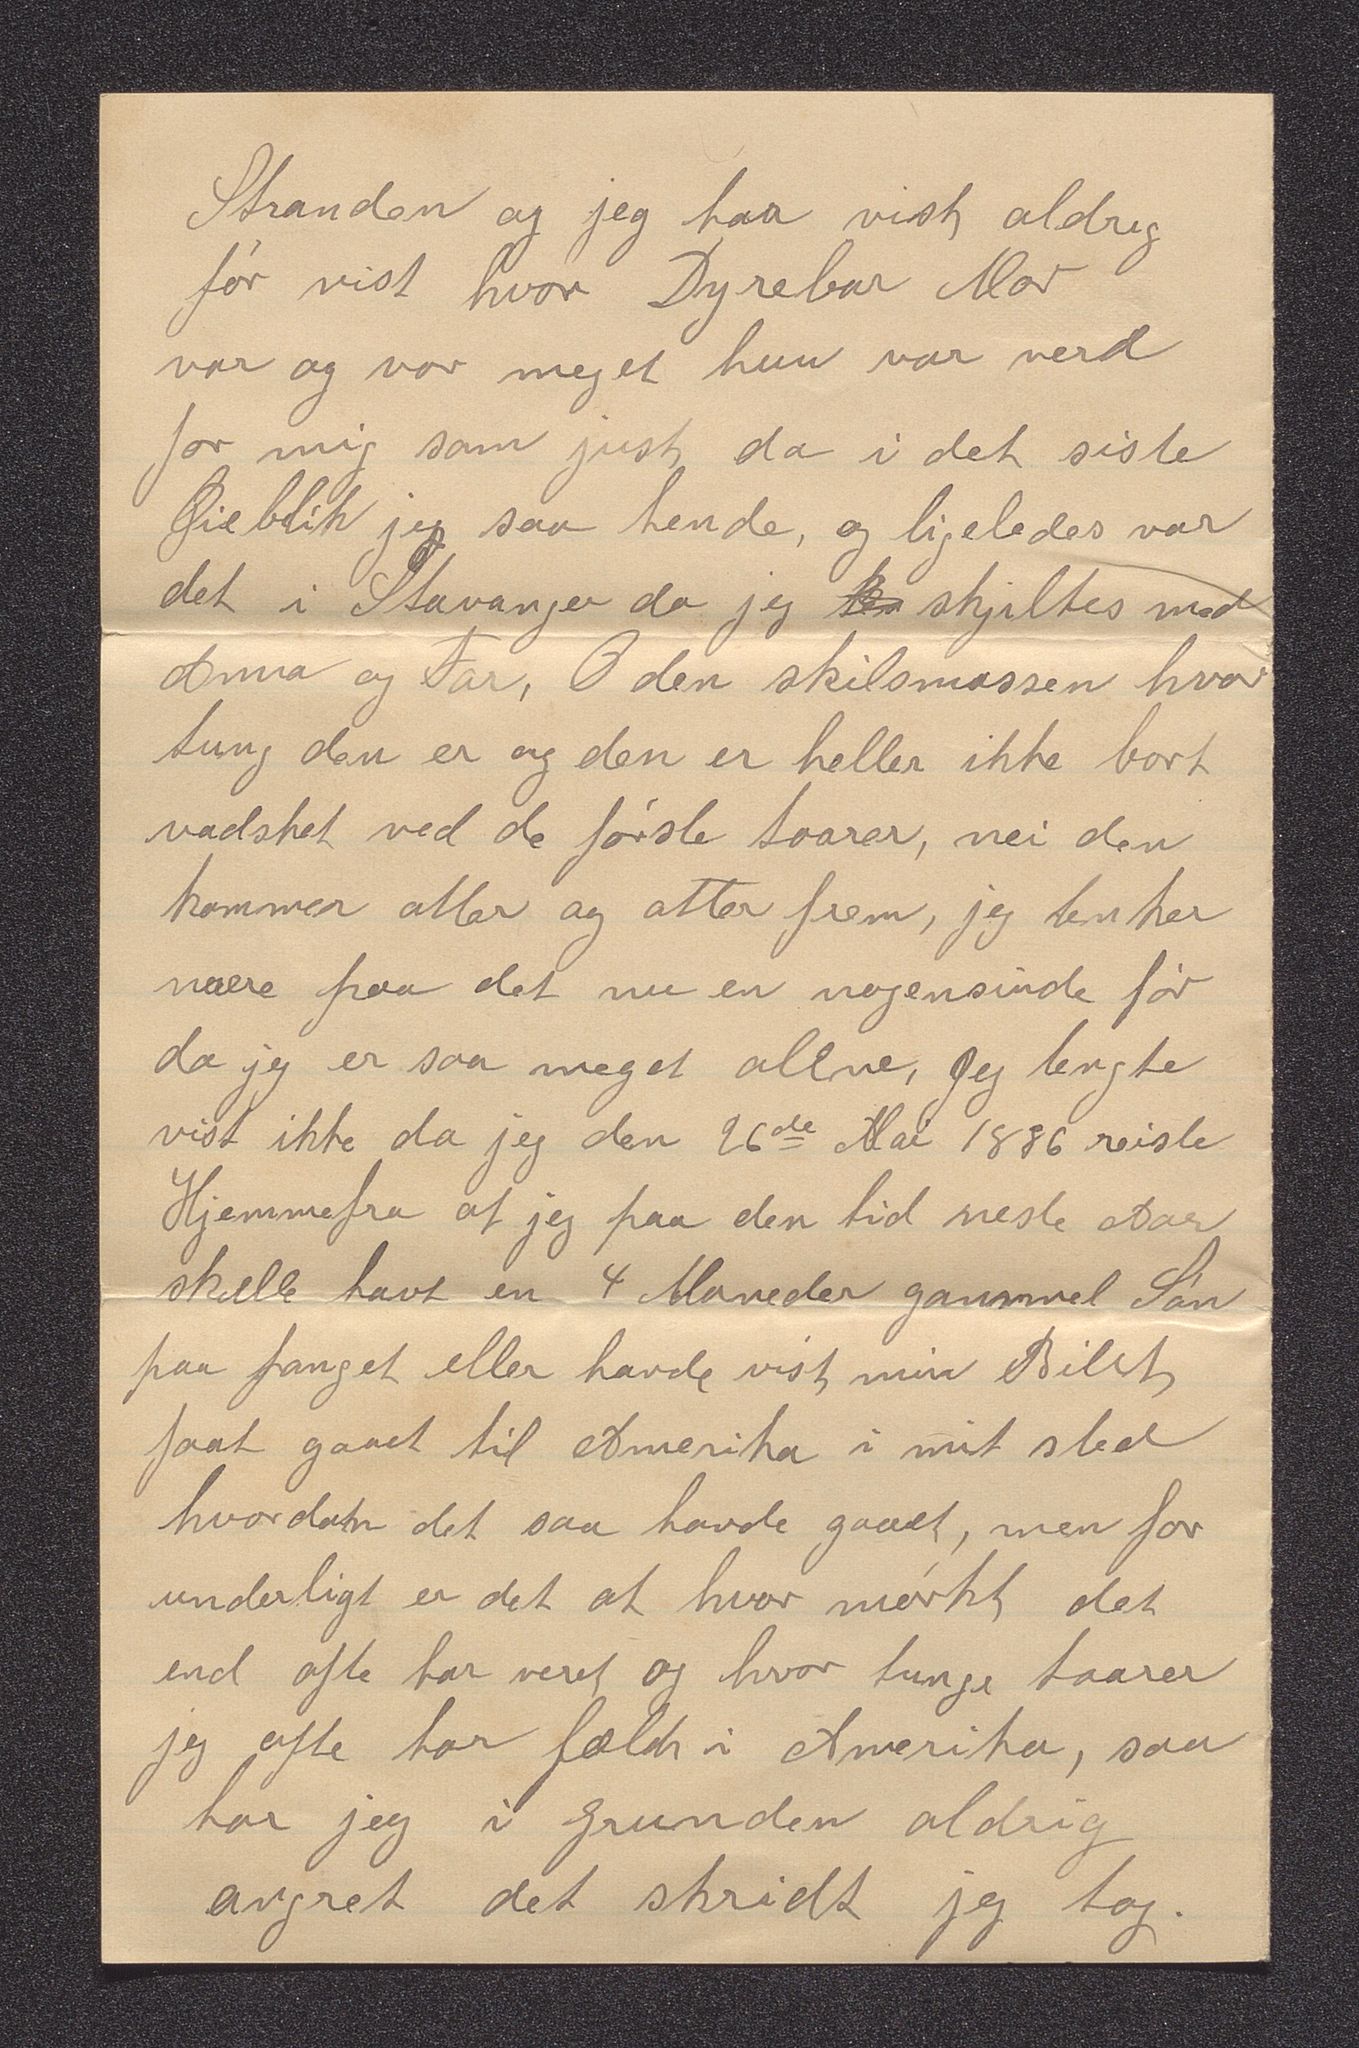 Stranden og jeg har vist aldrig
før vist hvor Dyrebar Mor
var og vor meget hun var verd
for mig som just da i det siste
Øieblik jeg saa hende, og ligeledes var
det i Stavanger da jeg skjiltes med
Anna og Far, O den skilsmassen hvor
tung den er og den er heller ikke bort
vadsket ved de første taarer, nei den
kommer atter og atter frem, jeg tenker
mere paa det nu en nogensinde før
da jeg er saa meget allene, Jeg tengte
vist ikke da jeg den 26de Mai 1886 reiste
Hjemmefra at jeg paa den tid neste Aar
skulle havt en 4 Maneder gammel Søn
paa fanget eller havde vist min Billet
faat gaaet til Amerika i mit sted
hvordan det saa havde gaaet, men for
underligt er det at hvor mørkt det
end ofte har veret og hvor tunge taarer
jeg ofte har fældt i Amerika, saa
har jeg i grunden aldrig
angret det skridt jeg tog.